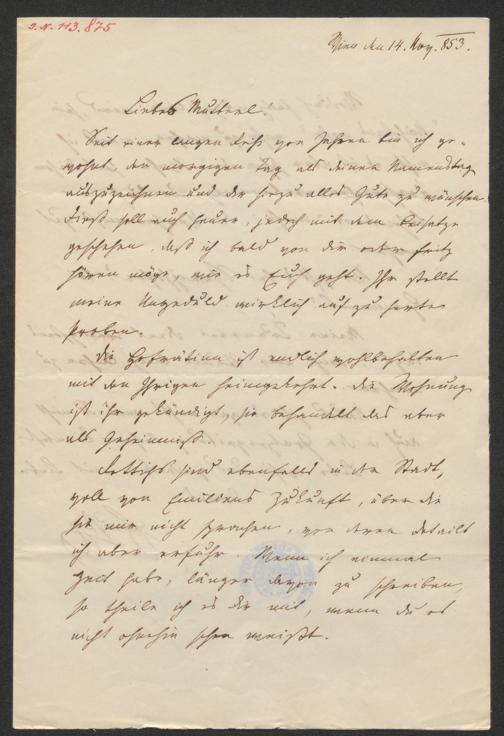 I.N. 113.875
Wien den 14. Nov. 853.
Liebes Mutterl
Seit einer langen Reihe von Jahren bin ich ge-
wohnt den morgigen Tag als deinen Namenstag
auszuzeichnen und dir hiezu alles Gute zu wünschen.
Dieß soll auch heuer, jedoch mit dem Beisatze
geschehen, daß ich bald von dir oder Fritz
hören möge, wie es Euch geht. Ihr stellt
meine Ungeduld wirklich auf zu harte
Proben.
Die Hofräthin ist endlich wohlbehalten
mit den Ihrigen heimgekehrt. Die Wohnung
ist ihr gekündigt, sie behandelt das aber
als Geheimniß.
sind ebenfalls in der Stadt,
voll von Emiliens Zukunft, über die
sie mir nicht sprachen, von deren Details
ich aber erfuhr. Wenn ich einmal
Zeit habe, länger davon zu schreiben,
so theile ich es dir mit, wenn du es
nicht ohnehin schon weißt.